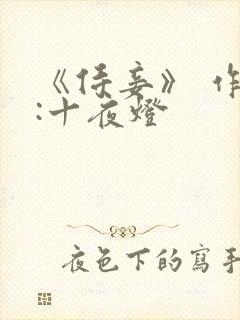 《侍妾》 作
:十夜燈
夜色下的寫手